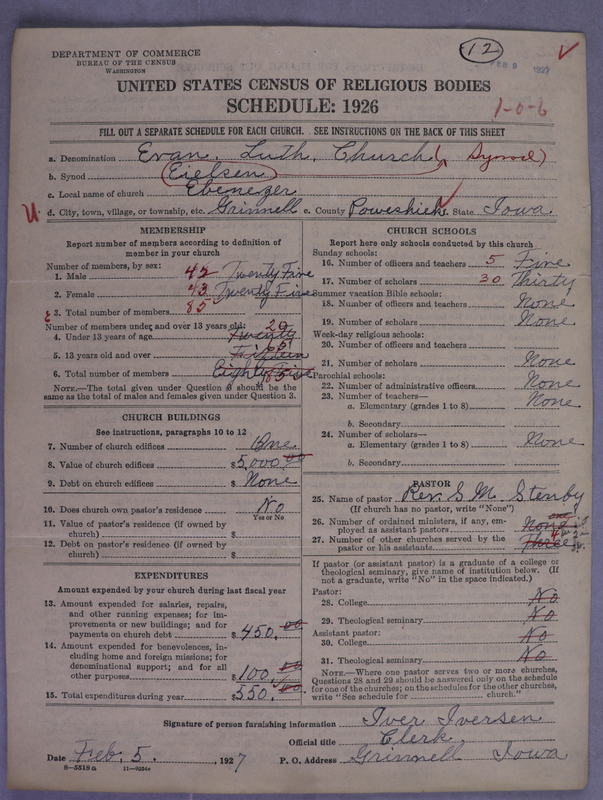 DEPARTMENT OF COMMERCE
BUREAU OF THE CENSUS
WASHINGTON
12
FEB 9 1927
UNITED STATES CENSUS OF RELIGIOUS BODIES
SCHEDULE: 1926
1-0-6
FILL OUT A SEPARATE SCHEDULE FOR EACH CHURCH. SEE INSTRUCTIONS ON THE BACK OF THIS SHEET
a. Denomination Evan. Luth. Church (Synod)
b. Synod Eielsen
c. Local name of church Ebenezer
d. City, town, village, or township, etc. Grinnell e. County Poweshiek State Iowa
MEMBERSHIP
Report number of members according to definition of member in your church
Number of members, by sex:
1. Male 42 Twenty Five
2. Female 43 Twenty Five
3. Total number of members 85
Number of members under and over 13 years old:
4. Under 13 years of age Twenty 20
5. 13 years old and over
6. Total number of members Eighty Five 85
NOTE.—The total given under Question 6 should be the same as the total of males and females given under Question 3.
CHURCH BUILDINGS
See instructions, paragraphs 10 to 12
7. Number of church edifices One
8. Value of church edifices $5,000.00
9. Debt on church edifices $ None
10. Does church own pastor's residence? No
Yes or No
11. Value of pastor's residence (if owned by church) $
12. Debt on pastor's residence (if owned by church) $
EXPENDITURES
Amount expended by your church during last fiscal year
13. Amount expended for salaries, repairs, and other running expenses; for improvements or new buildings; and for payments on church debt $450.00
14. Amount expended for benevolences, including home and foreign missions; for denominational support; and for all other purposes $100.00
15. Total expenditures during year $550.00
CHURCH SCHOOLS
Report here only schools conducted by this church
Sunday schools:
16. Number of officers and teachers 5 Five
17. Number of scholars 30 Thirty
Summer vacation Bible schools:
18. Number of officers and teachers None
19. Number of scholars None
Week-day religious schools:
20. Number of officers and teachers
21. Number of scholars None
Parochial schools:
22. Number of administrative officers None
23. Number of teachers—
a. Elementary (grades 1 to 8) None
b. Secondary
24. Number of scholars—
a. Elementary (grades 1 to 8) None
b. Secondary
PASTOR
25. Name of pastor Rev. S. M. Stenby
(If church has no pastor, write "None")
26. Number of ordained ministers, if any, employed as assistant pastors None
27. Number of other churches served by the pastor or his assistants Three
If pastor (or assistant pastor) is a graduate of a college or theological seminary, give name of institution below. (If not a graduate, write "No" in the space indicated.)
Pastor:
28. College No
29. Theological seminary No
Assistant pastor:
30. College No
31. Theological seminary No
NOTE.—Where one pastor serves two or more churches, Questions 28 and 29 should be answered only on the schedule for one of the churches; on the schedules for the other churches, write "See schedule for church."
Signature of person furnishing information Iver Iversen
Official title Clerk
Date Feb. 5. , 1927 P. O. Address Grinnell Iowa
8-5518a 11-9224